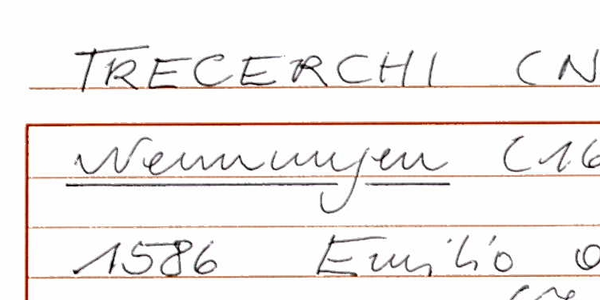 TRECERCHI (N
Nennungen (16
1586 Emilio